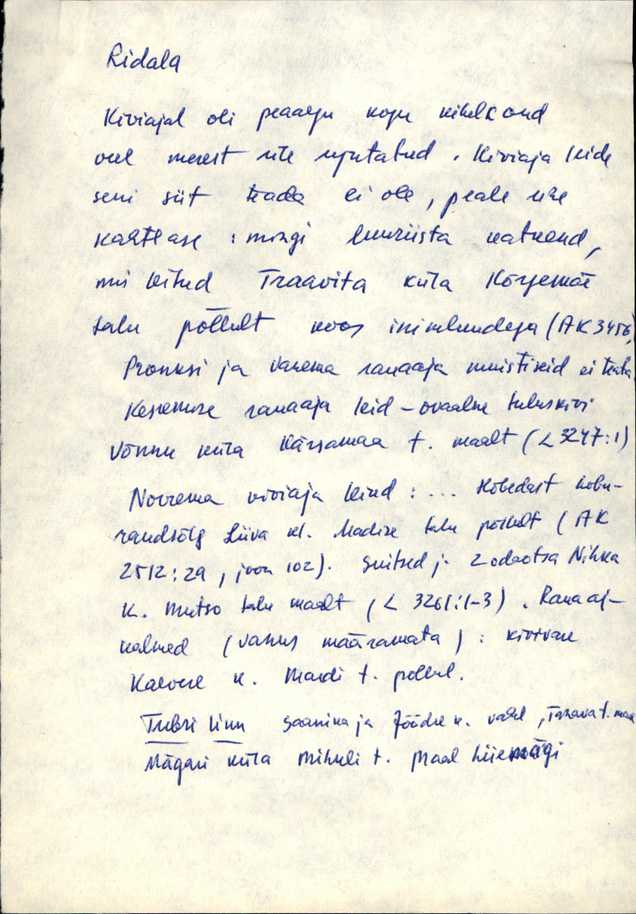 Ridala
Kiviajal oli peaaegu kogu kihelkond
veel merest üle ujutatud. Kiviaja leide
seni siit teada ei ole, peale ühe
kahtlase : mingi luuriista katkend,
mis leitud Traavita küla Kõrjemäe
talu põllult koos inimluudega (AK 3456)
Pronksi ja vanema rauaaja muistiseid ei teata
Keskmise rauaaja leid – ovaalne tuluskivi
Võnnu küla Kärsamaa t. maalt (L 3247:1)
Noorema rauaaja leiud : ... Hõbedast hobu-
raudsõlg Liiva kl. Madise talu põllult (AK
2512:29, joon 102). Suitsed ja 2 odaotsa Nihka
k. Mutso talu maalt (L 3261:1-3). Rauaaj-
kalmed (vanus määramata) : kivivare
Kaevere k. Mardi t. põllul.
Tubri linn Saanika ja Jõõdre k. vahel, t. maa
Mägari küla Mihkli t. maal Hiiemägi